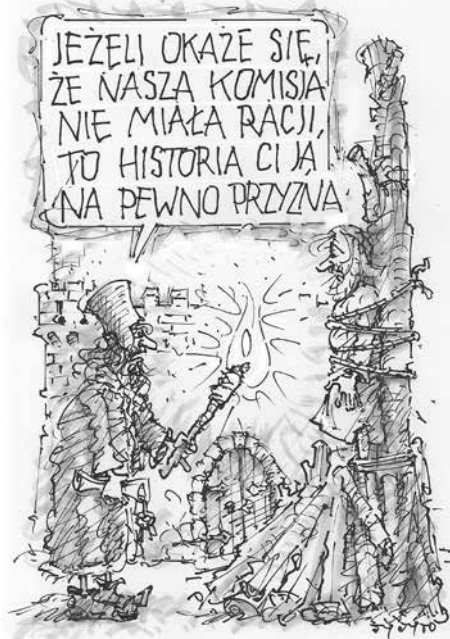 JEŻELI OKAŻE SIĘ,
ŻE NASZA KOMISJA
NIE MIAŁA RACJI,
TO HISTORIA CI JĄ
NA PEWNO PRZYZNA